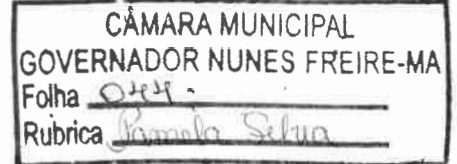 CÂMARA MUNICIPAL
GOVERNADOR NUNES FREIRE-MA
Folha 044.
Rubrica Pamela Silva